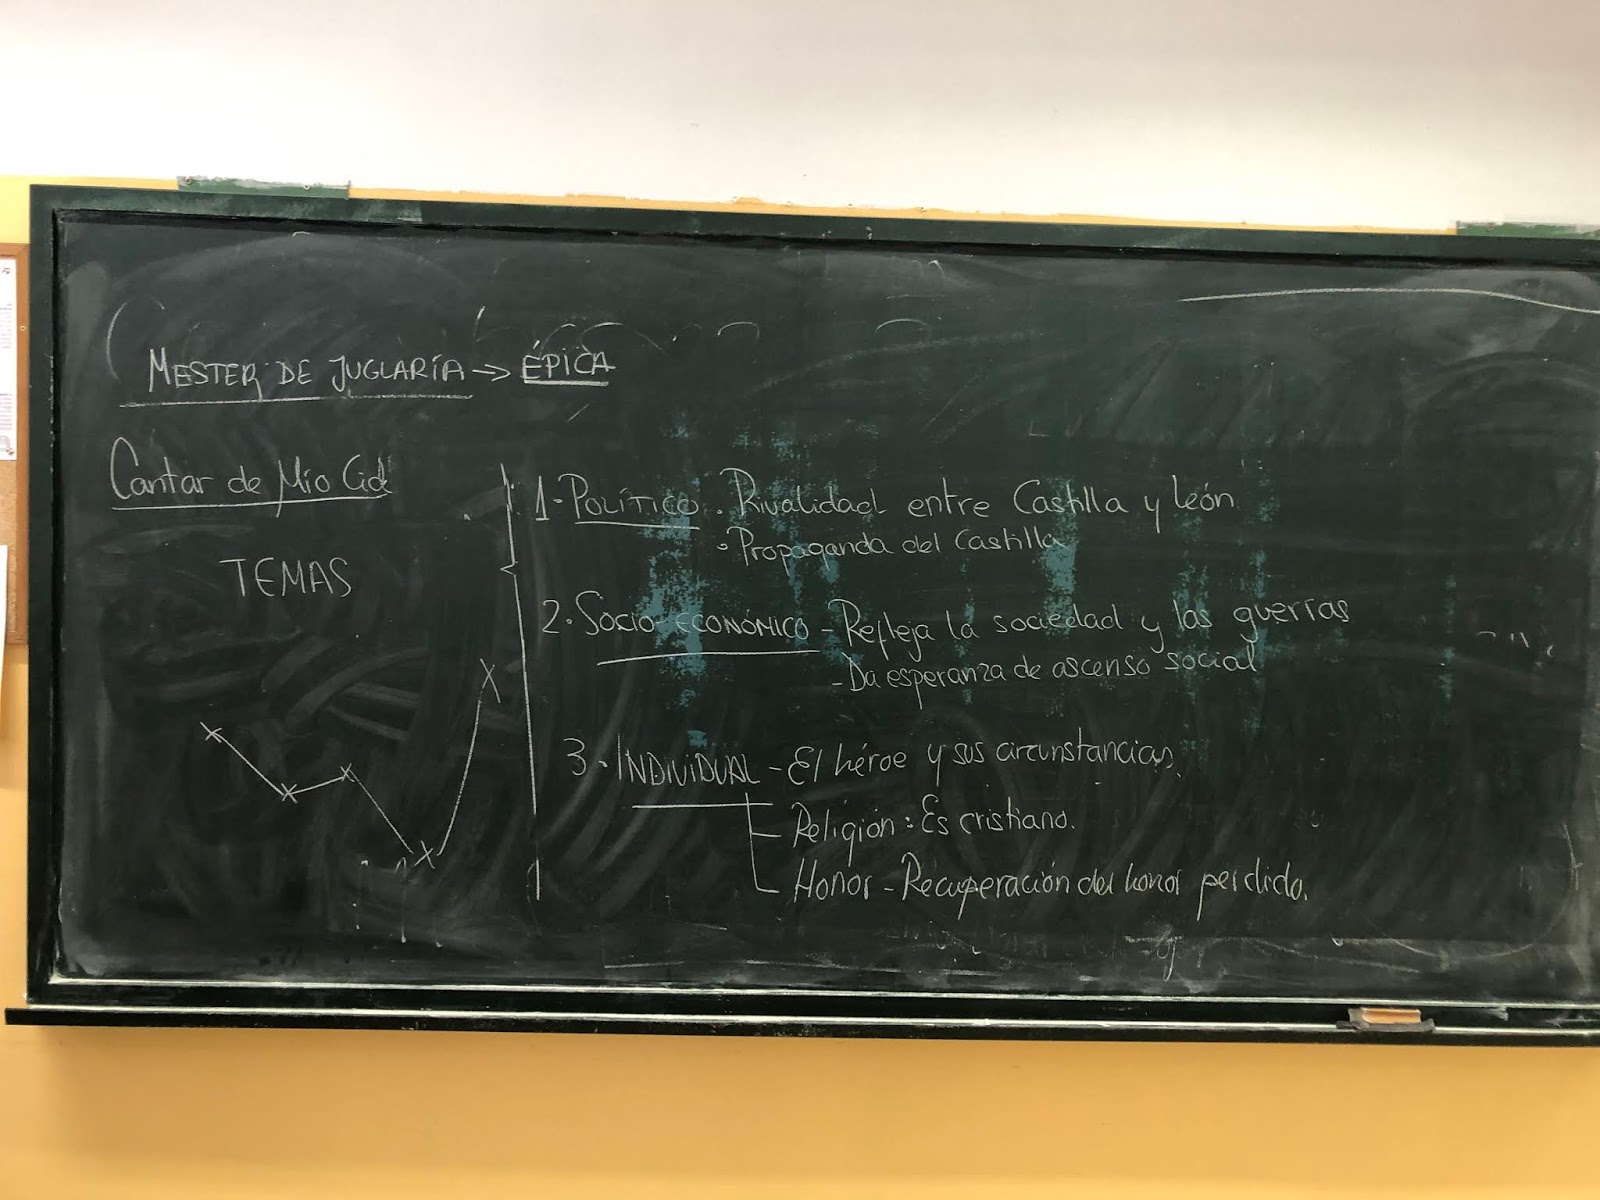 MESTER DE JUGLARÍA → ÉPICA
Cantar de Mío Cid
TEMAS
1- POLÍTICO . Rivalidad entre Castilla y León
• Propaganda del Castilla
2. SOCIO-ECONÓMICO - Refleja la sociedad y las guerras
- Da esperanza de ascenso social
3. INDIVIDUAL - El héroe y sus circunstancias.
Religión: Es cristiano.
Honor - Recuperación del honor perdido.